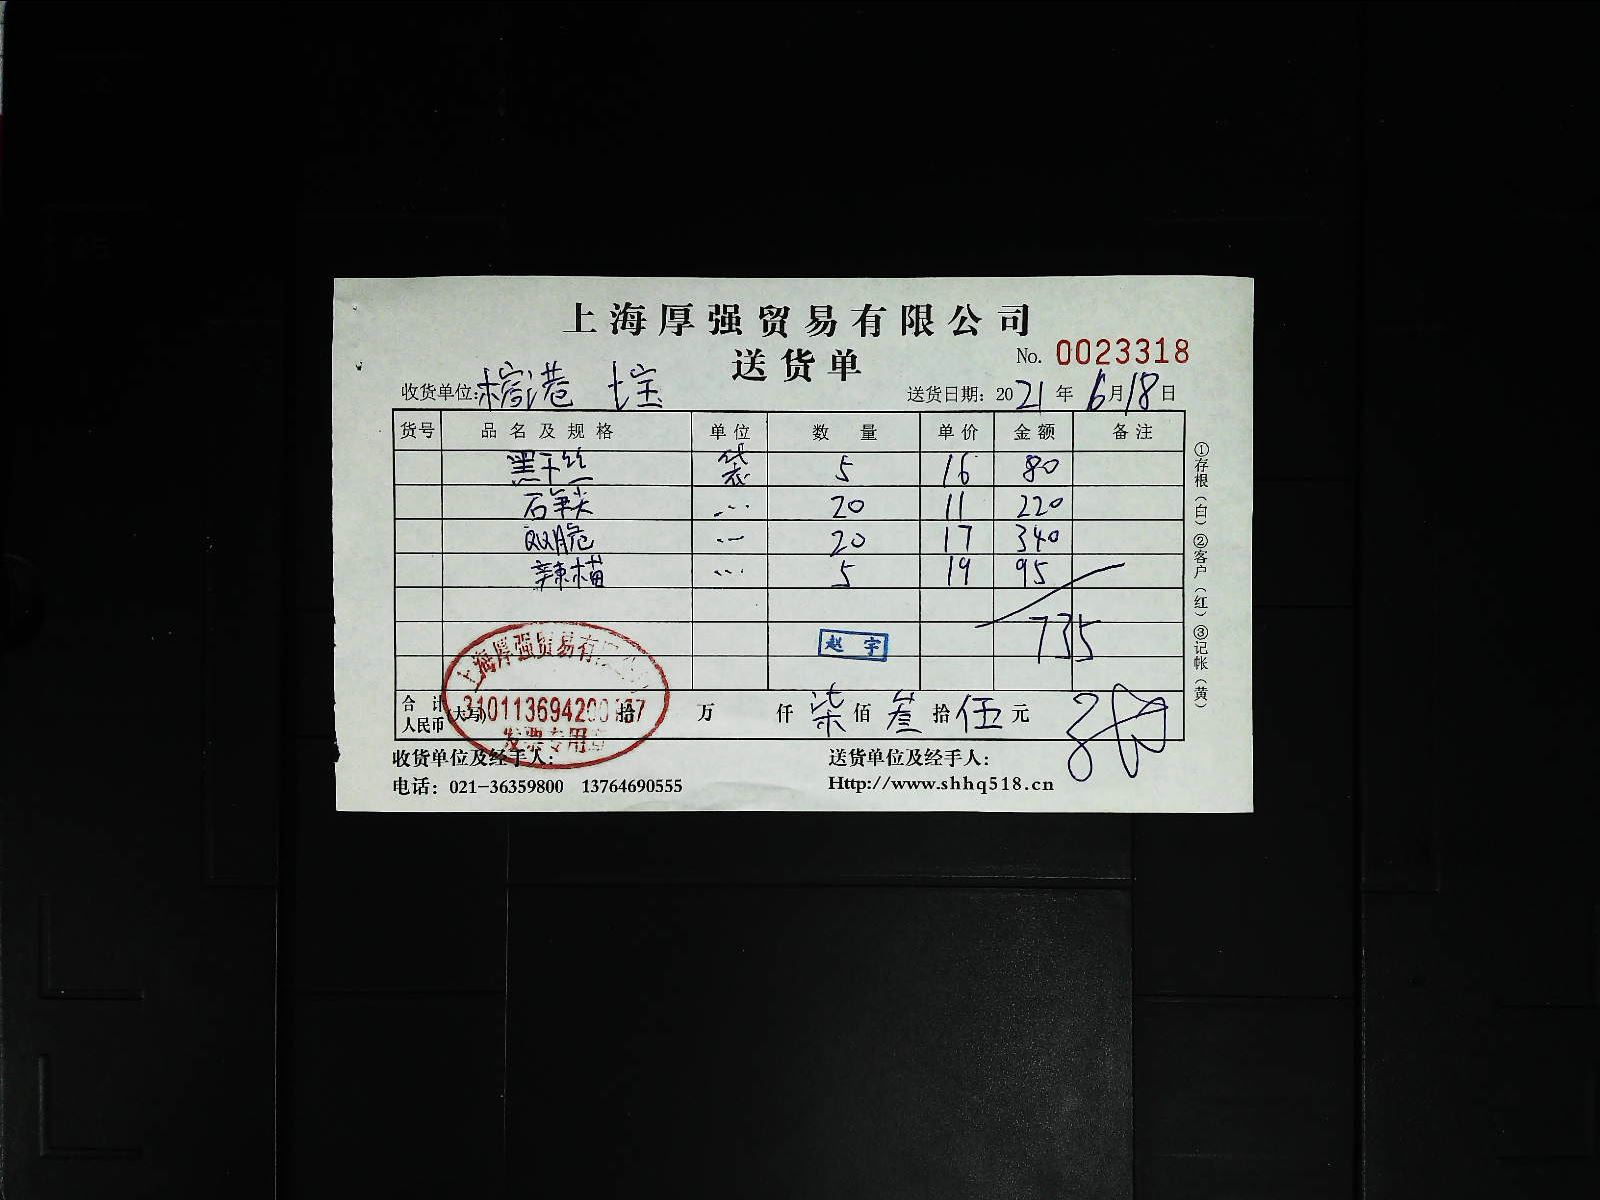 上海厚强贸易有限公司
送货单
No. 0023318
收货单位: 榕港 七宝
送货日期: 2021年6月18日
货号 品名及规格 单位 数量 单价 金额 备注
黑干丝 袋 5 16 80
石 20 11 220
双脆 20 17 340
辣 5 19 95
735
赵宇
合计人民币(大写) 拾 万 仟 柒佰 叁拾 伍元
上海厚强贸易有限公司
310113694200
发票专用章
收货单位及经手人:
送货单位及经手人:
电话: 021-36359800 13764690555
Http://www.shhq518.cn
①存根(白)②客户(红)③记帐(黄)